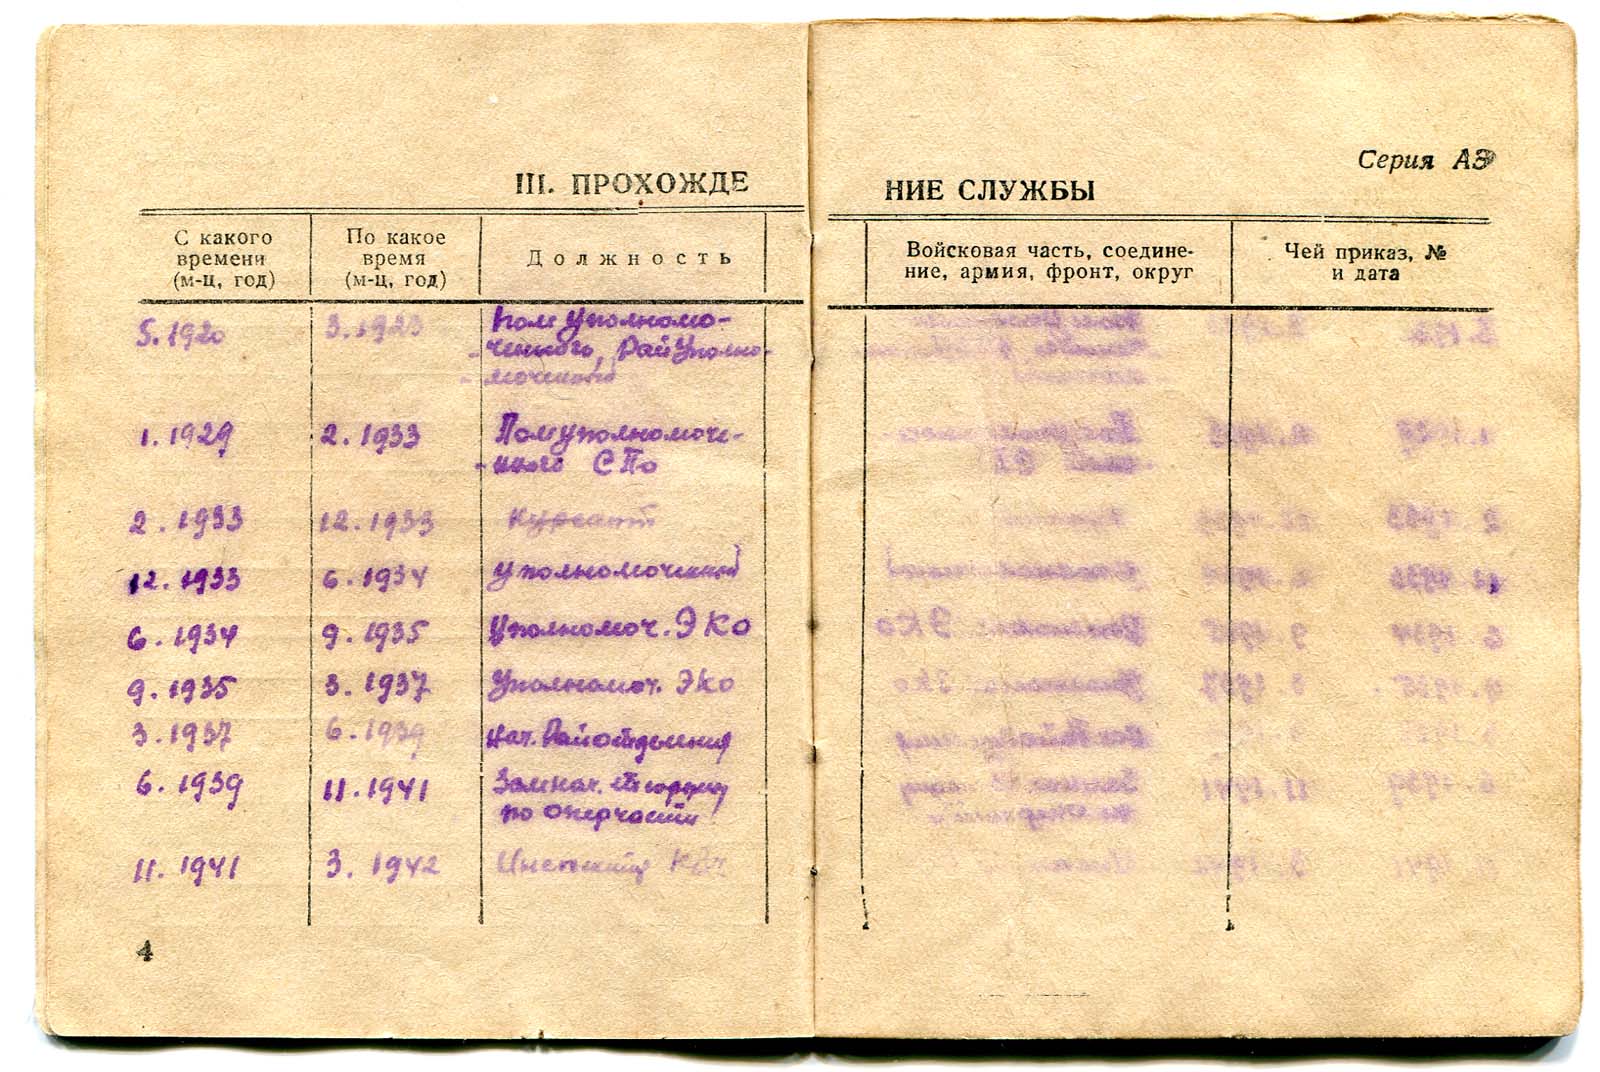 Серия АЭ
III. ПРОХОЖДЕ НИЕ СЛУЖБЫ
С какого времени (м-ц, год)
По какое время (м-ц, год)
Должность
Войсковая часть, соедине-
ние, армия, фронт, округ
Чей приказ, №
и дата
5.1920 3.1923 Пом уполномо-
-ченного, РайУполно-
-моченный
1.1929 2.1933 Помуполномоче-
-нного СПо
2.1933 12.1933 Курсант
12.1933 6.1934 Уполномоченный
6.1934 9.1935 Уполномоч. ЭКо
9.1935 3.1937 Уполномоч. ЭКо
3.1937 6.1939 Нач. Райотделения
6.1939 11.1941 Замнач.
по оперчасти
11.1941 3.1942
4